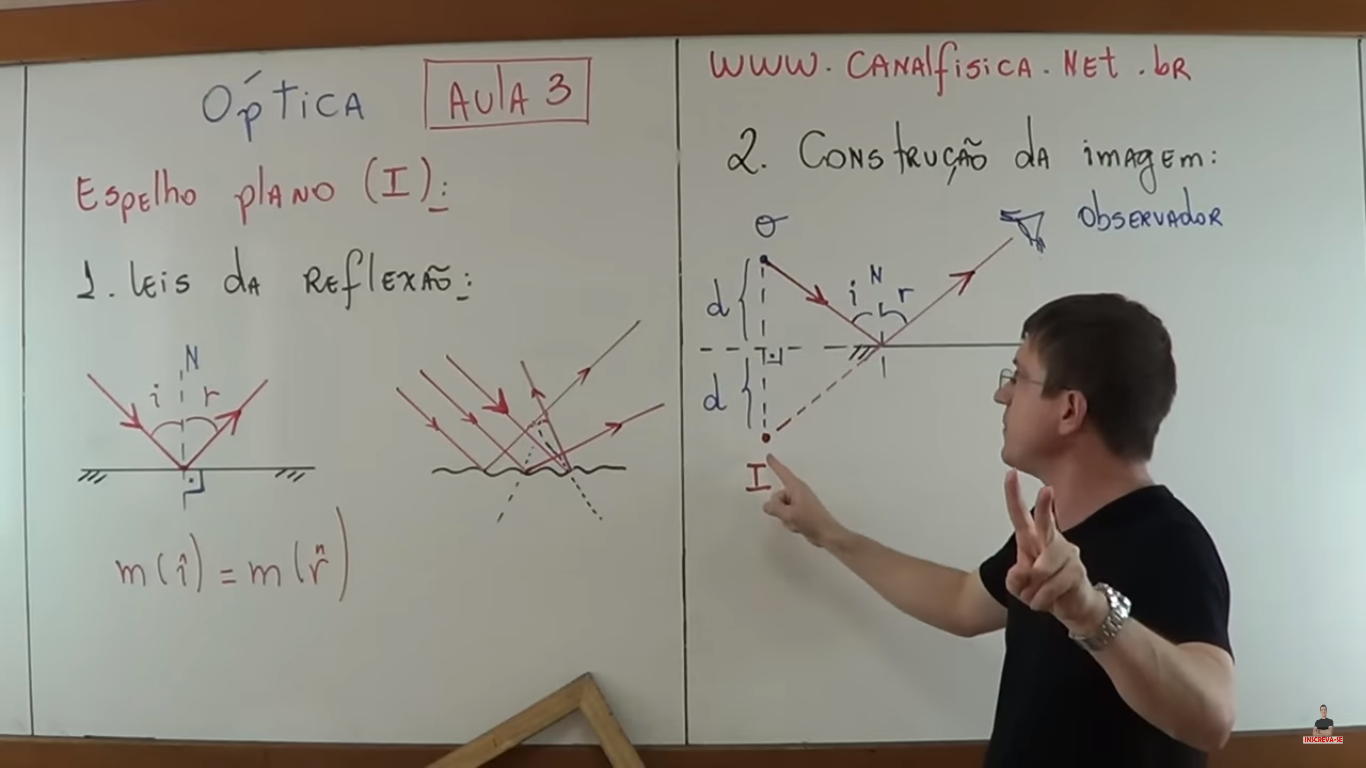 Óptica
AULA 3
Espelho plano (I):
1. Leis da Reflexão:
N
i
r
m(î) = m(r̂)
www.canalfisica.net.br
2. Construção da imagem:
O
Observador
d
i
N
r
d
I
INSCREVA-SE